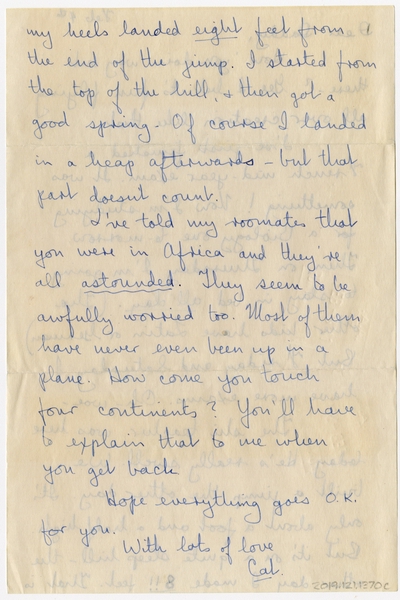 my heels landed eight feet from
the end of the jump. I started from
the top of the hill, & then got a
good spring. Of course I landed
in a heap afterwards - but that
part doesn't count.
I've told my roomates that
you were in Africa and they're
all astounded. They seem to be
awfully worried too. Most of them
have never even been up in a
plane. How come you touch
four continents? You'll have
to explain that to me when
you get back
Hope everything goes O.K.
for you.
With lots of love
Cal.
2019.121.1370c